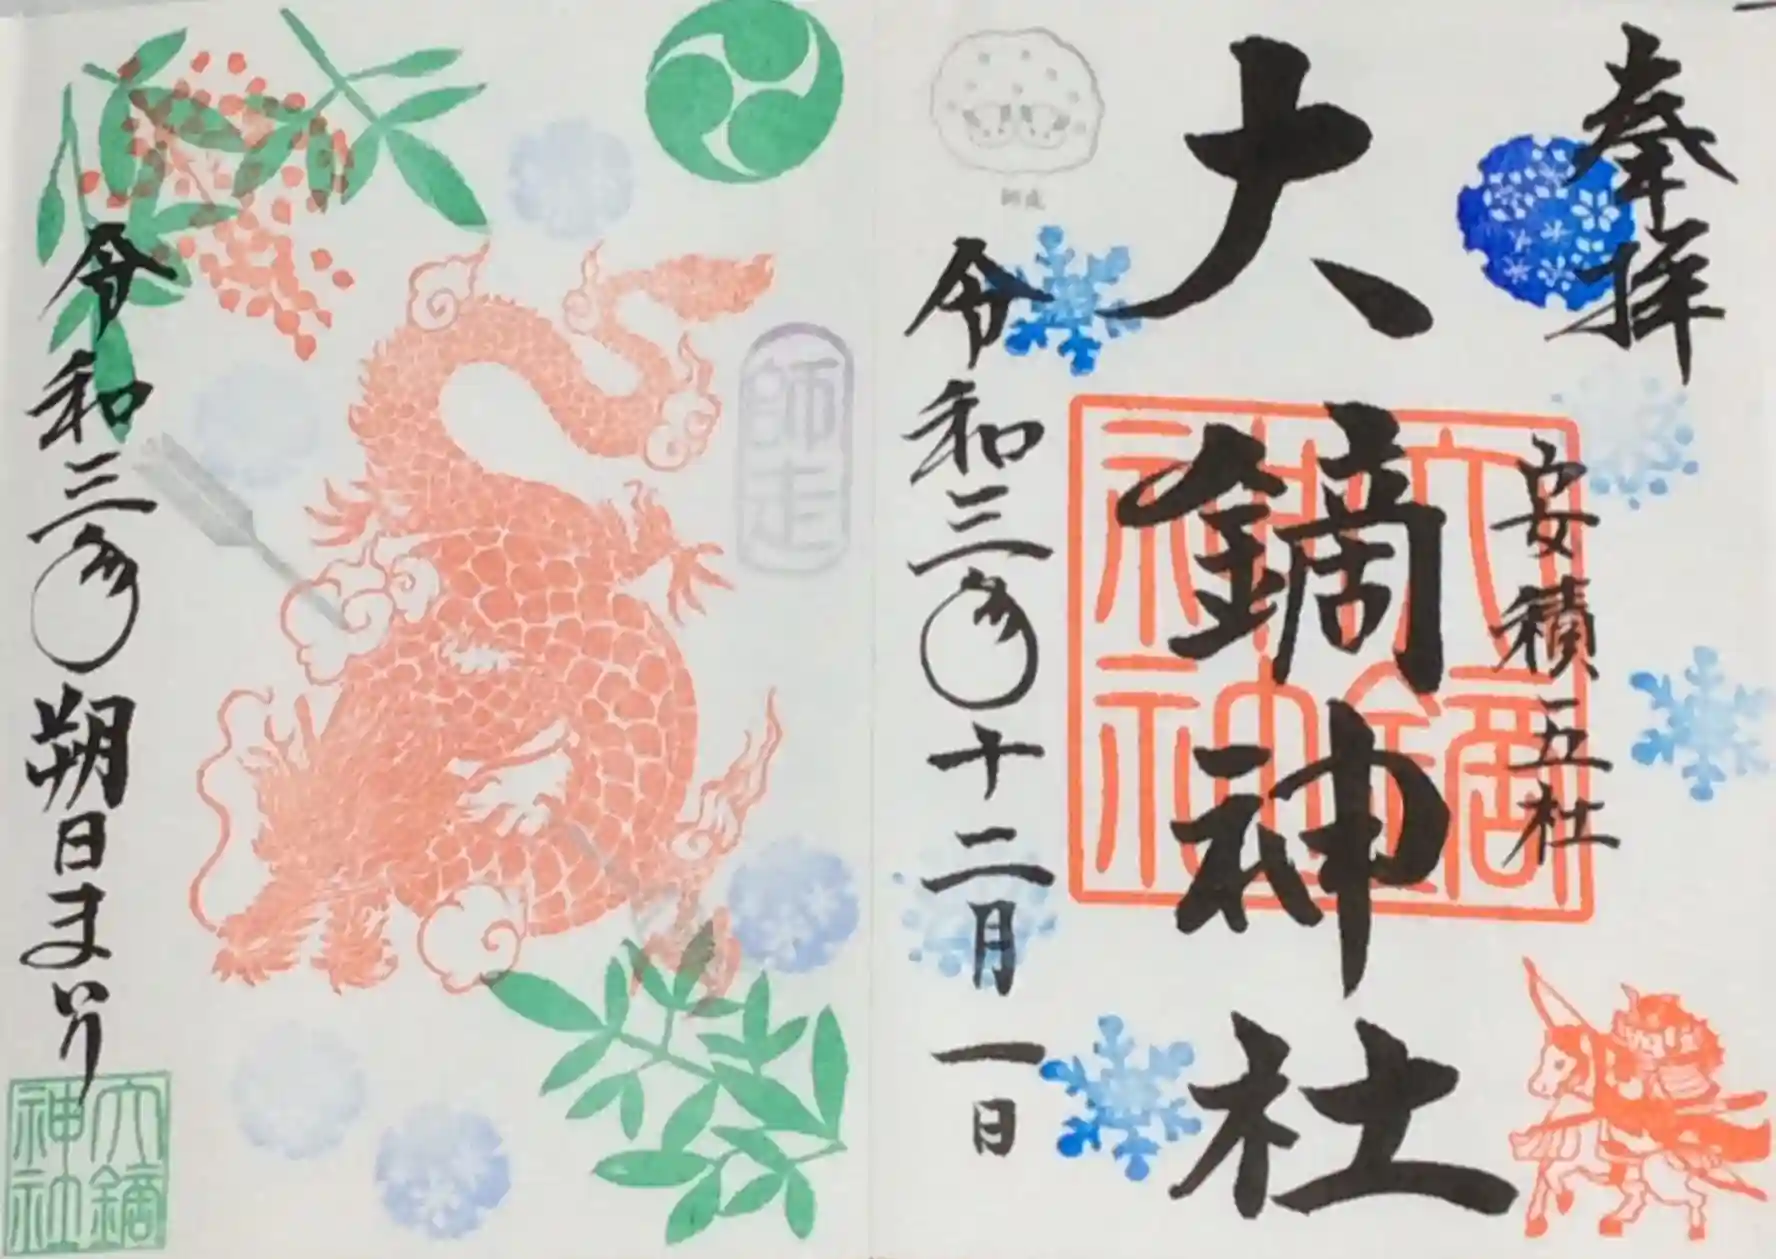 奉拝
安積五社
大鏑神社
大鏑神社
令和三年十二月一日
師走
令和三年朔日まいり
大鏑神社